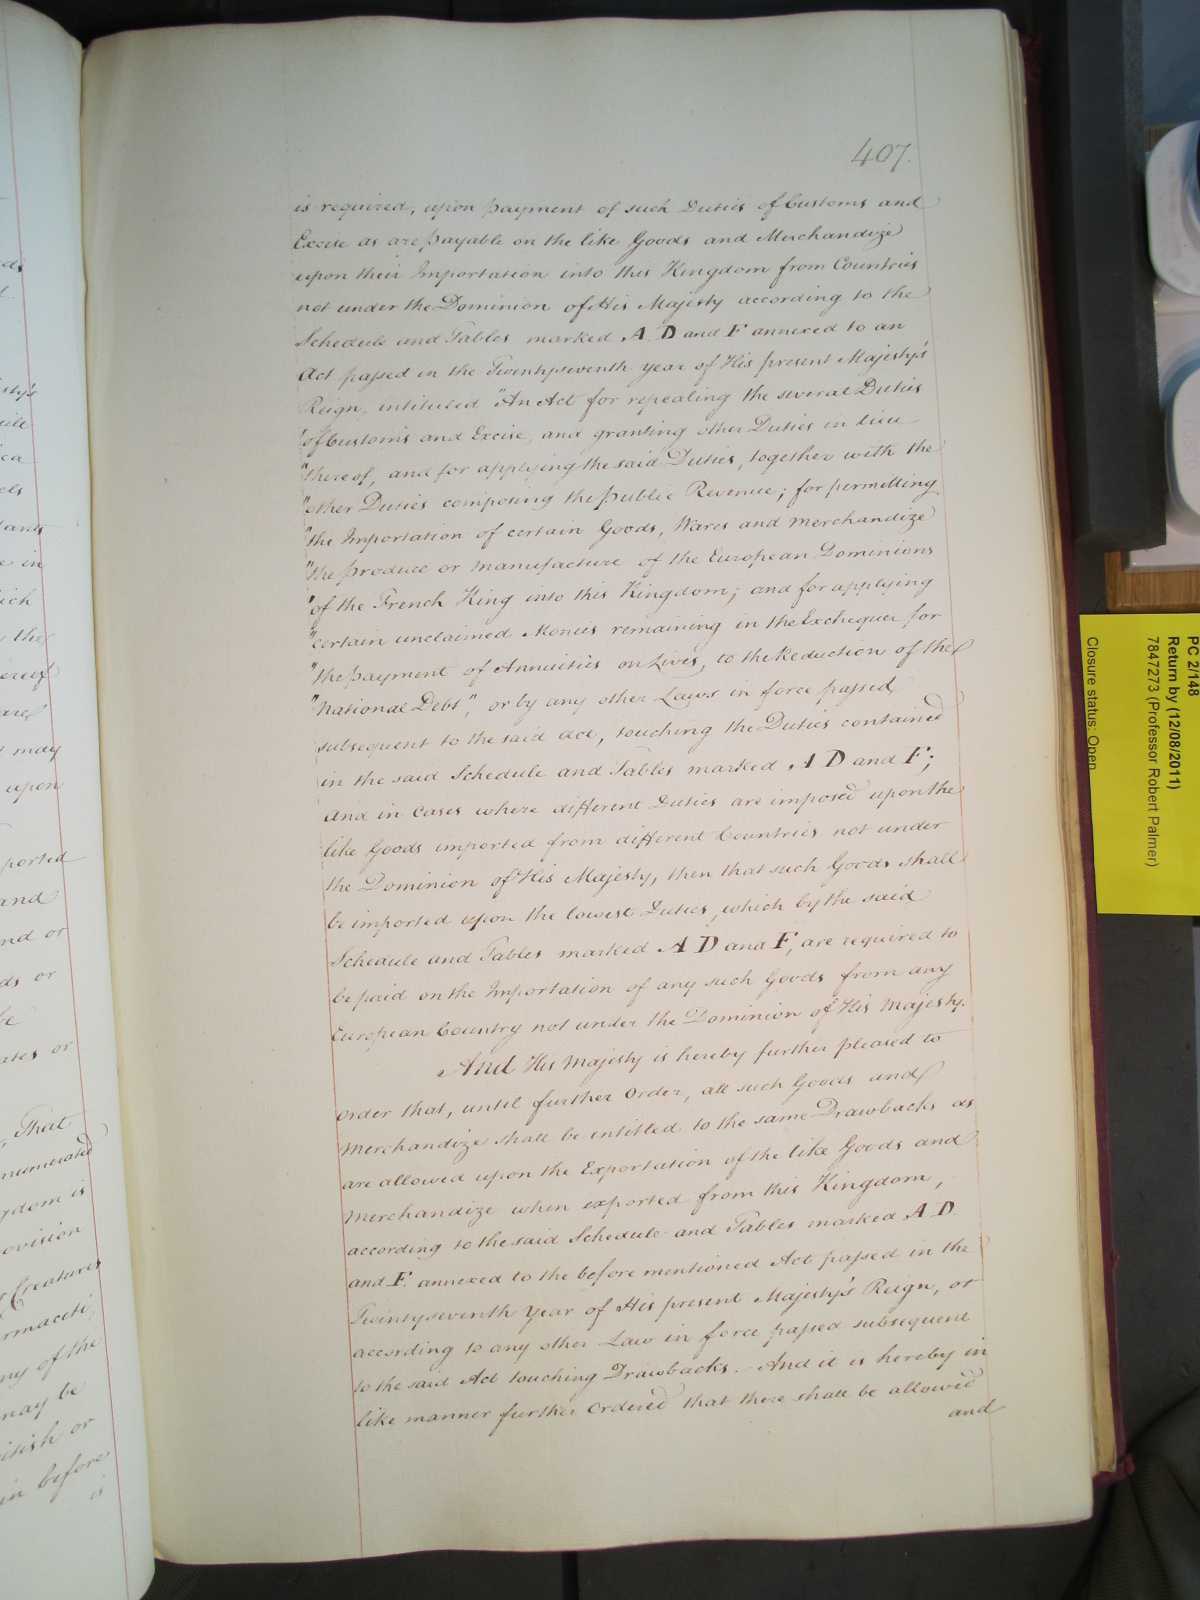 407.
is required, upon payment of such Duties of Customs and
Excise as are payable on the like Goods and Merchandize
upon their Importation into this Kingdom from Countries
not under the Dominion of His Majesty according to the
Schedule and Tables marked A. D and F annexed to an
Act passed in the Twentyseventh year of His present Majesty's
Reign, intituled "An Act for repealing the several Duties
"of Customs and Excise, and granting other Duties in lieu
"thereof, and for applying the said Duties, together with the
"other Duties composing the public Revenue; for permitting
"the Importation of certain Goods, Wares and Merchandize
"the produce or manufacture of the European Dominions
"of the French King into this Kingdom; and for applying
"certain unclaimed Monies remaining in the Exchequer for
"the payment of Annuities on Lives, to the Reduction of the
"National Debt", or by any other Laws in force passed
subsequent to the said Act, touching the Duties contained
in the said Schedule and Tables marked A D and F;
and in Cases where different Duties are imposed upon the
like Goods imported from different Countries not under
the Dominion of His Majesty, then that such Goods shall
be imported upon the lowest Duties, which by the said
Schedule and Tables marked A D and F, are required to
be paid on the Importation of any such Goods from any
European Country not under the Dominion of His Majesty.
And His Majesty is hereby further pleased to
order that, until further Order, all such Goods and
Merchandize shall be entitled to the same Drawbacks as
are allowed upon the Exportation of the like Goods and
Merchandize when exported from this Kingdom,
according to the said Schedule and Tables marked A D.
and F. annexed to the before mentioned Act passed in the
Twentyseventh Year of His present Majesty's Reign, or
according to any other Law in force passed subsequent
to the said Act touching Drawbacks. And it is hereby in
like manner further Ordered that there shall be allowed
and
PC 2/148
Return by (12/08/2011)
7847273 (Professor Robert Palmer)
Closure status: Open
may
upon
ported
and
nd or
ds or
ates or
That
numerated
gdom is
ovision
Creatures
rmaceti,
ny of the
may be
itish or
in before
is